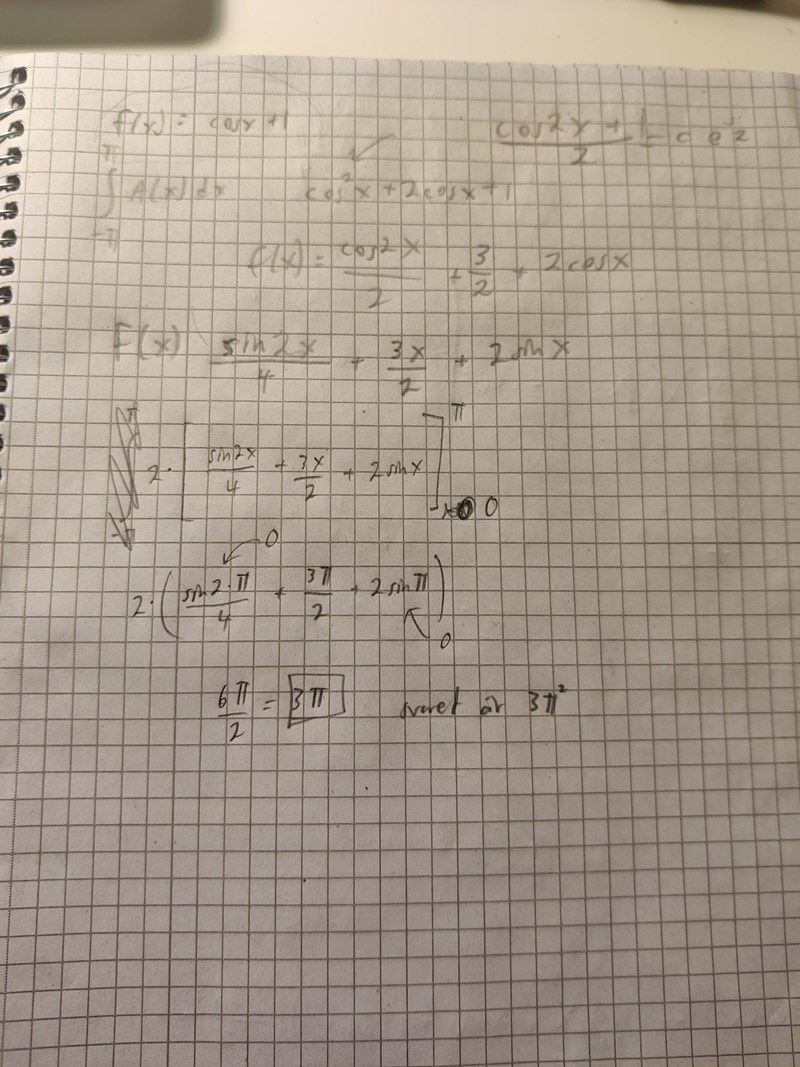 f(x) = cosx +1
cos2x + 1 / 2
π
∫ A(x) dx cos²x + 2cosx + 1
-π
f(x) = cos2x / 2 + 3/2 + 2cosx
F(x) sin2x / 4 + 3x/2 + 2sinx
2· [ sin2x / 4 + 3x/2 + 2sinx ] π 0
0
2· ( sin2·π / 4 + 3π/2 + 2sinπ )
0
6π/2 = 3π svaret är 3π²